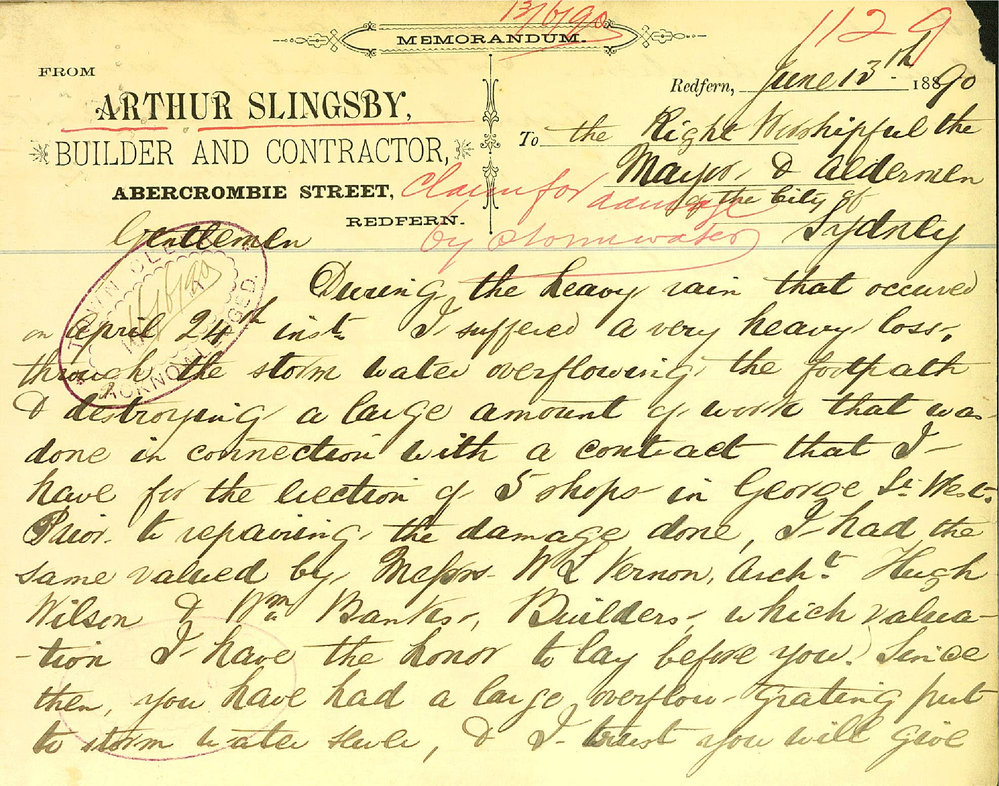 13/6/90
1129
MEMORANDUM.
FROM
ARTHUR SLINGSBY,
BUILDER AND CONTRACTOR,
ABERCROMBIE STREET,
REDFERN.
Redfern, June 13th 1890
To the Right Worshipful the
Mayor & Aldermen
of the City of
Sydney
Claim for damage
by stormwater
Gentlemen
TOWN CLERK
ACKNOWLEDGED.
During the heavy rain that occured
on april 24th inst. I suffered a very heavy loss,
through the storm water overflowing the footpath
& destroying a large amount of work that was
done in connection with a contract that I
have for the erection of 5 shops in George St. West.
Prior to repairing the damage done, I had the
same valued by Messrs W L Vernon, Archt. Hugh
Wilson & Wm Banks, Builders, which valua-
-tion I have the honor to lay before you. Since
then, you have had a large overflow grating put
to storm water sewer, & I trust you will give